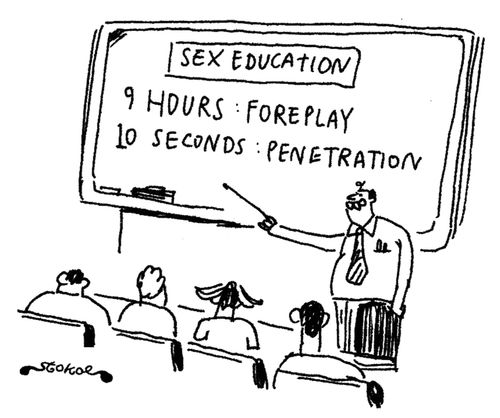 SEX EDUCATION
9 HOURS : FOREPLAY
10 SECONDS : PENETRATION
stokoe